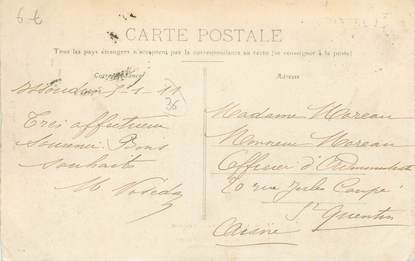 6 €
CARTE POSTALE
Tous les pays étrangers n'acceptent pas la correspondance au recto (se renseigner à la poste)
Correspondance
Adresse
1-11
36
Très affectueux
Souvenir Bons
souhaits
M
Madame Moreau
Monsieur Moreau
Officier d'
20 rue Jules
St Quentin
Aisne